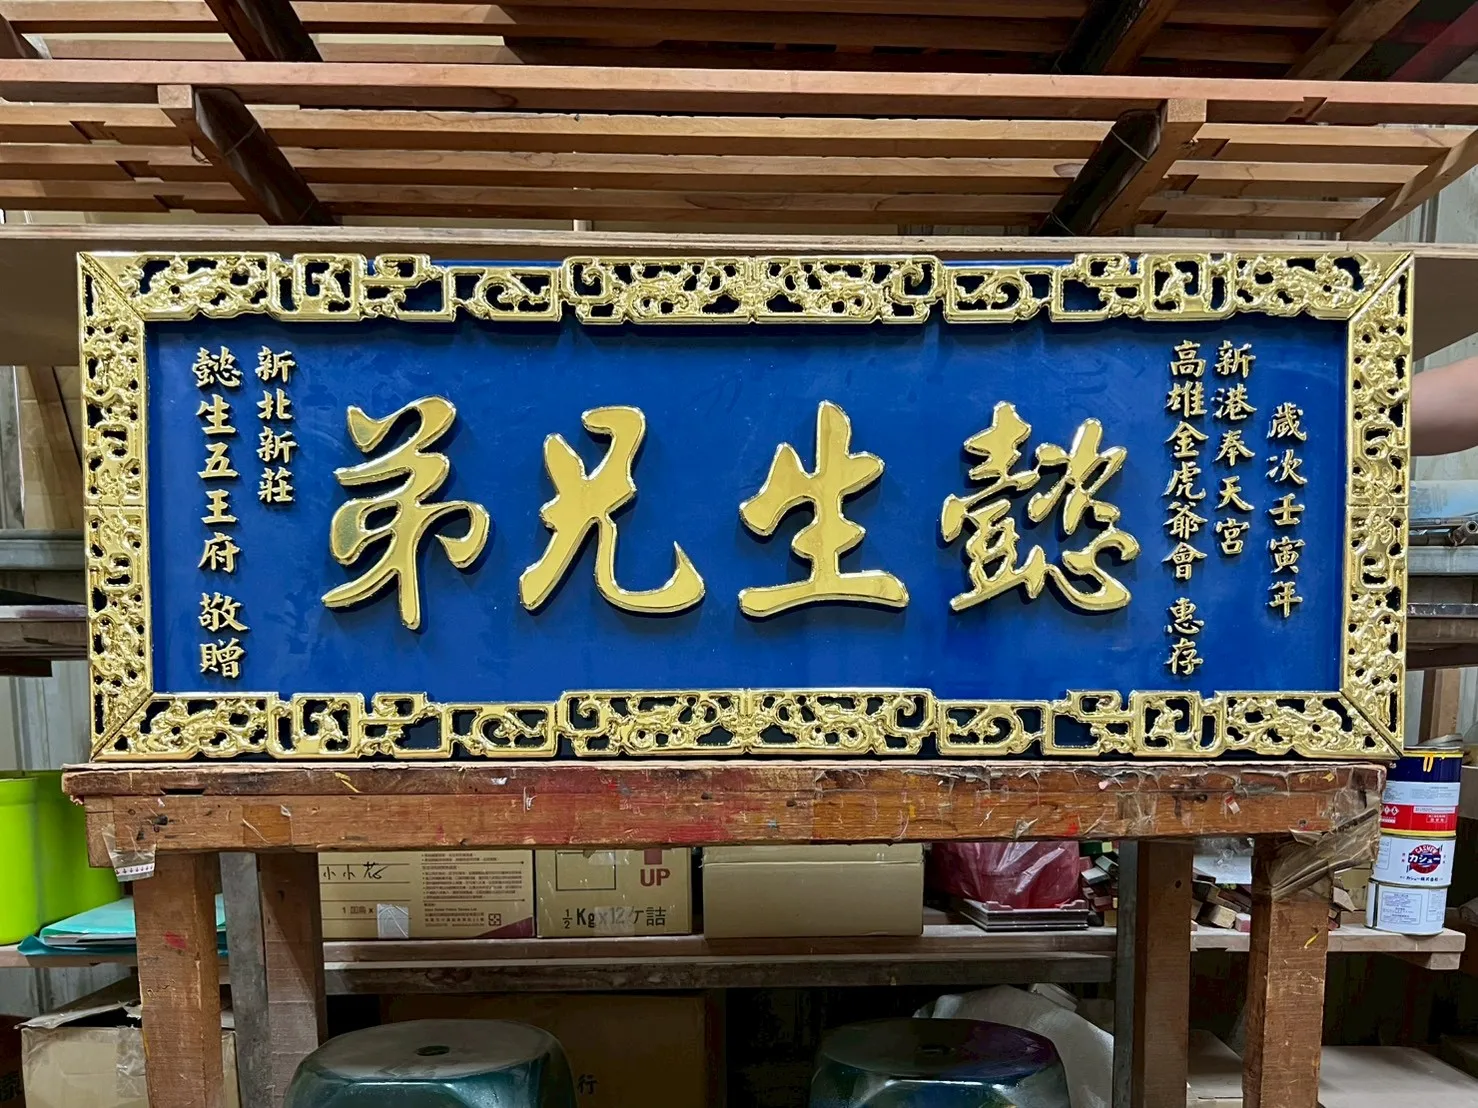 歲次壬寅年
新港奉天宮
高雄金虎爺會 惠存
懿生兄弟
新北新莊
懿生五王府 敬贈
小小花
UP
½ Kg×12ケ詰
CASHEW
カシュー
行